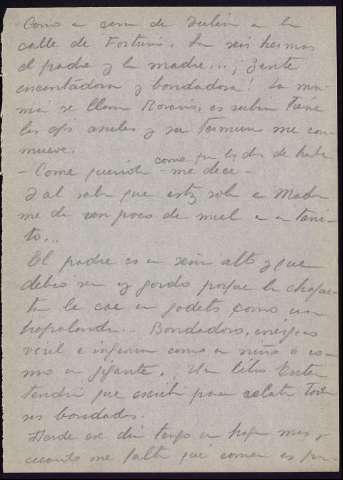 Como a casa de Julián a la
calle de Fortuni. Son seis hermas
el padre y la madre...; ¡Gente
encantadora y bondadosa! La ma-
má se llama Rosario, es rubia tiene
los ojos azules y su ternura me con
mueve.
- Come querida - me dice -
Y al saber que estoy sola en Madri
me da un poco de miel en un tarri-
to...
El padre es un señor alto y que
debió ser muy gordo porque la chaque
ta le cae en godets como una
hopalanda... Bondadoso, enérgico
viril e ingenuo como un niño o co-
mo un gigante. Un libro entero
tendría que escribir para relatar todas
sus bondades.
Desde ese día tengo un hogar más y
cuando me falta que comer es por